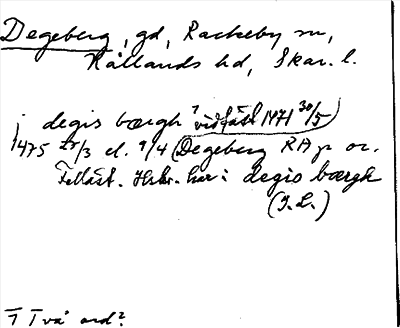 Degeberg, gd, Rackeby sn,
Kållands hd, Skar. l.
i degis bærgh ꜚ vidfäst 1471 30/5
1475 25/3 el. 9/4 (Degeberg RAp or.
Felläst. Hskr. har: degis bærgh
(I. L.)
ꜚ Två ord?